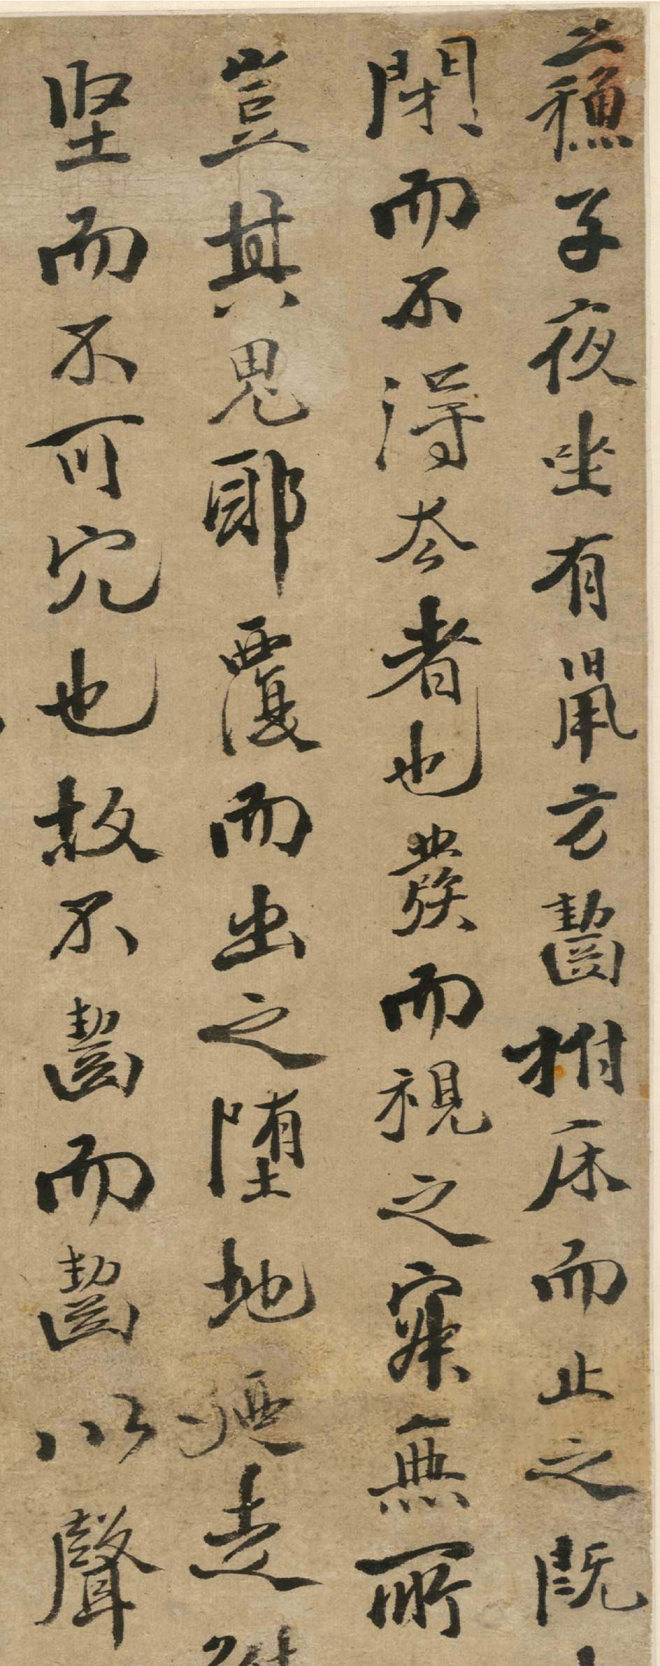 蘓子夜坐有鼠方齧拊床而止之既
閉而不得去者也發而視之寂無所
豈其鬼耶覆而出之墮地廼走
堅而不可穴也故不齧而齧以聲